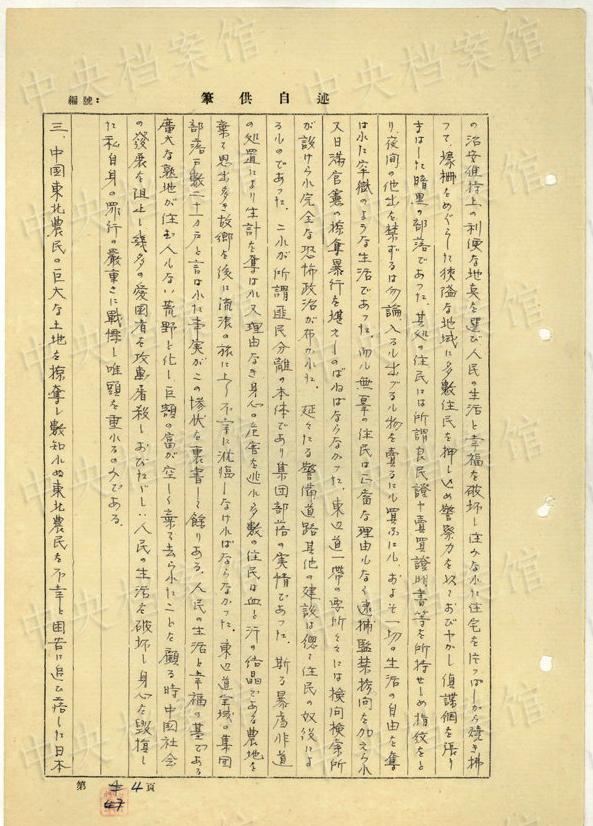 筆供自述
編號：
の治安維持上の利便な地点を選び人民の生活と幸福を破坏し住みなれた住宅を片っぱしから焼き拂
って壕柵をめぐらした狭隘な地域に多数住民を押し込め警察力を以ておびやかし偵諜網を張り
まはした暗黒の部落であった。其処の住民には所謂良民證や賣買證明書等を所持せしめ指紋をと
り夜间の他出を禁ずるは勿論入るも出づるも物を賣るにも買ふにも、およそ一切の生活の自由を奪
はれた牢獄のような生活であった。而も無辜の住民は正当な理由もなく逮捕監禁拷问を加えられ
又日満官憲の掠奪暴行を堪えしのばねばならなかった。東辺道一帯の要所々々には検问検索所
が設けられ完全な恐怖政治が布かれた。延々たる警備道路其他の建設は偬て住民の奴役によ
るものであった。これが所謂匪民分離の本体であり集団部落の実情であった。斯る暴虐非道
の処置により生計を奪はれ又理由なき身心の危害を逃れ多数の住民は血と汗の结晶である農地を
棄て思出多き故郷を後に流浪の旅に上り不幸に沈淪しなければならなかった。東辺道全域の集団
部落戸数二十万戸と言はれた事実がこの惨状を裏書して餘りある。人民の生活と幸福の基である
廣大な熟地が住む人もない荒野と化し巨額の富が空しく棄て去られたことを顧る時中国社会
の發展を阻止し幾多の愛国者を攻撃屠殺しおびただしい人民の生活を破坏し身心を毀損し
た私自身の罪行の嚴重さに戰慄し唯頭を垂れるのみである。
三、中国東北農民の巨大な土地を掠奪し数知れぬ東北農民を不幸と困苦に追ひ落した日本
第 4 頁
47
中央档案馆